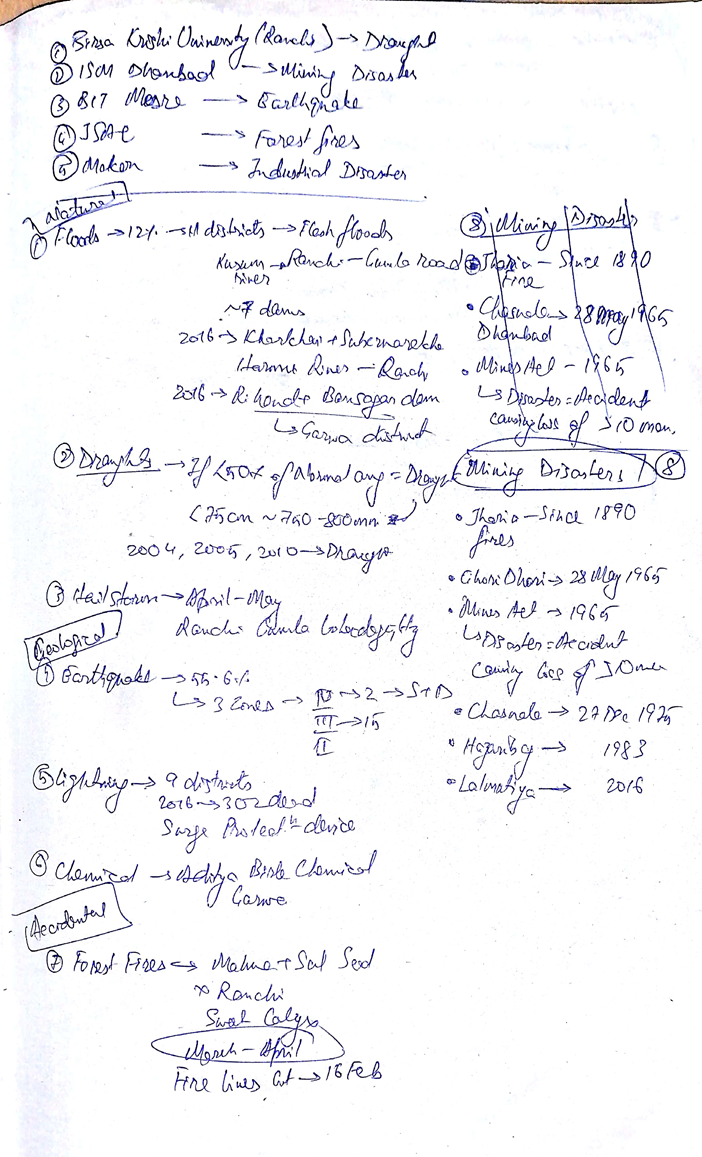 ① Birsa Krishi University (Ranchi) → Draught
② ISM Dhanbad → Mining Disaster
③ BIT Mesra → Earthquake
④ JSAC → Forest fires
⑤ Mekon → Industrial Disaster
Natural
① Floods → 12% → 11 districts → Flash floods
→ Ranchi - Gumla road
River
~7 dams
2016 → Kharkhai + Subernarekha
Harmu River - Ranchi
2016 → Rihand + Bansagar dam
↳ Garwa district
② Draughts → If <50% of Normal avg = Draught
<75cm ~ 750-800mm
2004, 2005, 2010 → Draught
③ Hailstorm → April-May
Ranchi Gumla
Geological
④ Earthquake → 55.6%
↳ 3 Zones → IV → 2 → S+D
III → 15
II
⑤ Lightning → 9 districts
2016 → 302 dead
Surge Protectn device
⑥ Chemical → Aditya Birla Chemical
Garwa
Accidental
⑦ Forest Fires → Mahua + Sal Seed
Ranchi
March-April
Fire lines cut → 16 Feb
⑧ Mining Disaster
Jharia - Since 1890
Fire
• Chasnala → 28 May 1965
Dhanbad
• Mines Act - 1965
↳ Disaster = Accident
causing loss of 10 men.
Mining Disasters ⑧
• Jharia - Since 1890
fires
• Ghori Dhori → 28 May 1965
• Mines Act → 1965
↳ Disaster = Accident
causing loss of 10 men
• Chasnala → 27 Dec 1975
• Hazaribag → 1983
• Lalmatiya → 2016